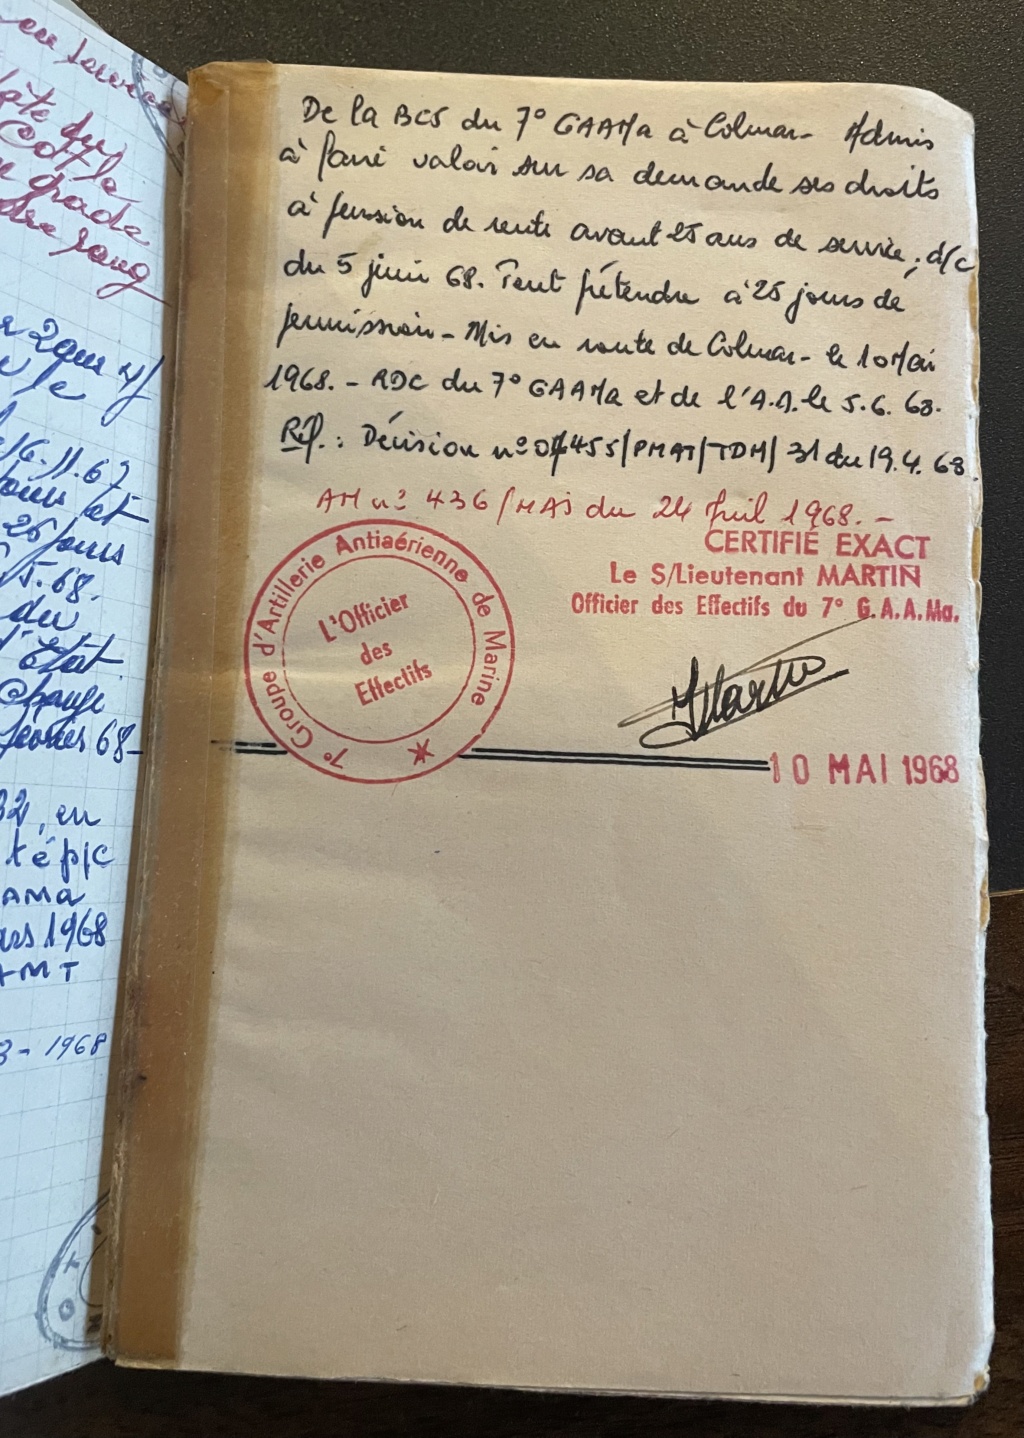 en service
Cotte
grade
rang
16.11.67
jours et
25 jours
5.68.
du
Etat
charge
68-
32, en
té p/c
AMa
ars 1968
AMT
3-1968
De la BCS du 7° GAAMa à Colmar- Admis
à faire valoir sur sa demande ses droits
à pension de reute avant 25 ans de service; d/c
du 5 juin 68. Peut prétendre à 25 jours de
permission- Mis en route de Colmar- le 10 Mai
1968.- RDC du 7° GAAMa et de l'A.A. le 5.6.68.
Réf.: Décision n° 04455/PMAT/TDM/31 du 19.4.68
AM n° 436/MAS du 24 Juil 1968.-
CERTIFIÉ EXACT
Le S/Lieutenant MARTIN
Officier des Effectifs du 7° G.A.A.Ma.
7° Groupe d'Artillerie Antiaérienne de Marine
L'Officier
des
Effectifs
10 MAI 1968